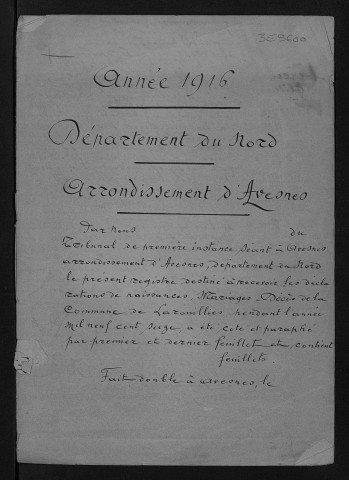 3E9600
Année 1916
Département du Nord
Arrondissement d'Avesnes
Par nous du
Tribunal de première instance séant à Avesnes
arrondissement d'Avesnes, département du Nord
le présent registre destiné à recevoir les décla
rations de naissances, Mariages, Décès de la
Commune de Larouillies, pendant l'année
Mil neuf cent seize a été coté et paraphé
par premier et dernier feuillet et contient
feuillets.
Fait double à Avesnes, le